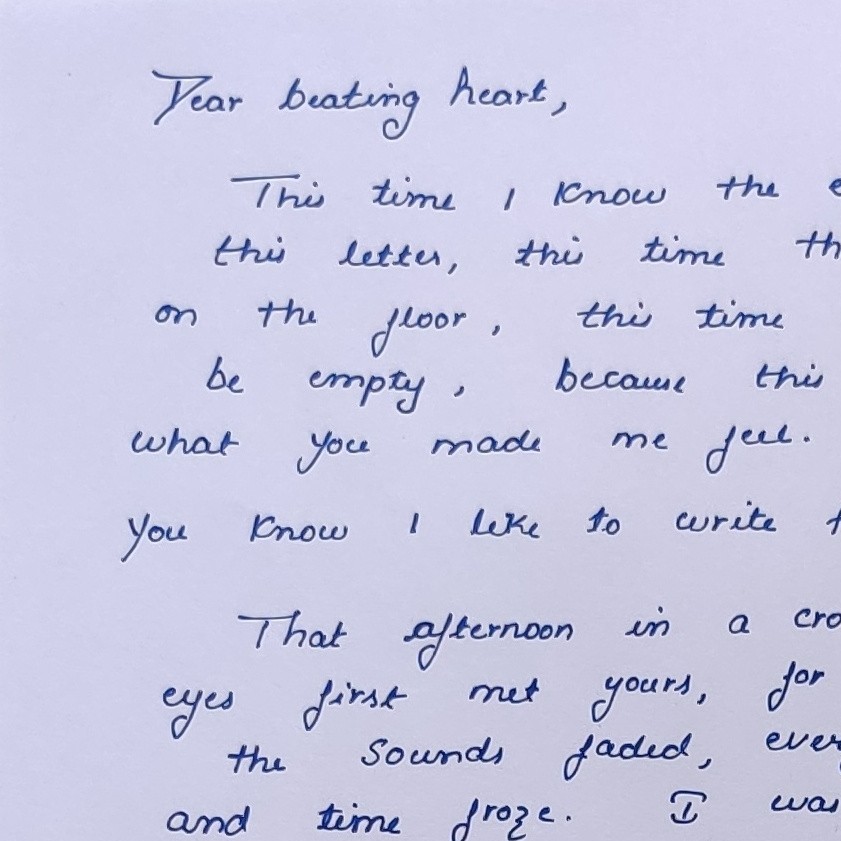 Dear beating heart,
This time I know the
this letter, this time
on the floor, this time
be empty, because this
what you made me feel.
You know I like to write
That afternoon in a
eyes first met yours, for
the sounds faded,
and time froze. I was